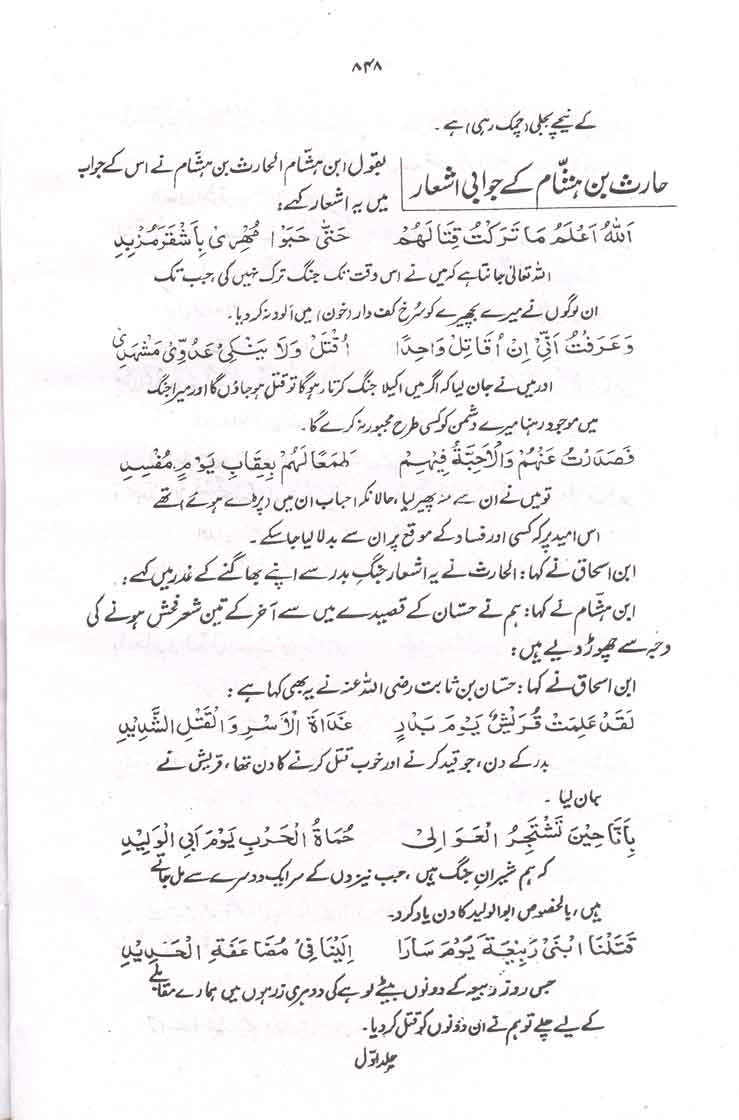 ۸۴۸
کے نیچے بجلی (چمک رہی) ہے۔
حارث بن ہشّام کے جوابی اشعار
بقول ابن ہشّام الحارث بن ہشّام نے اس کے جواب
میں یہ اشعار کہے:
اَللهُ اَعْلَمُ مَا تَرَكْتُ قِتَالَهُمْ حَتّٰى حَبَوْا مُهْرِىْ بِاَشْقَرَ مُزْبِدِ
اللہ تعالیٰ جانتا ہے کہ میں نے اس وقت تک جنگ ترک نہیں کی جب تک
ان لوگوں نے میرے بچھیرے کو سُرخ کف دار (خون) میں آلودہ نہ کر دیا۔
وَعَرَفْتُ اَنِّىْ اِنْ اُقَاتِلْ وَاحِدًا اُقْتَلْ وَلَا يَنْكِىْ عَدُوِّىْ مَشْهَدِىْ
اور میں نے جان لیا کہ اگر میں اکیلا جنگ کرتا رہوں گا تو قتل ہو جاؤں گا اور میرا جنگ
میں موجود رہنا میرے دشمن کو کسی طرح مجبور نہ کرے گا۔
فَصَدَدْتُ عَنْهُمْ وَالْاَحِبَّةُ فِيْهِمْ طَمَعًا لَهُمْ بِعِقَابِ يَوْمٍ مُفْسِدِ
تو میں نے ان سے منہ پھیر لیا، حالانکہ احباب ان میں (پڑے ہوئے) تھے
اس امید پر کہ کسی اور فساد کے موقع پر ان سے بدلا لیا جا سکے۔
ابن اسحاق نے کہا: الحارث نے یہ اشعار جنگِ بدر سے اپنے بھاگنے کے عذر میں کہے:
ابن ہشّام نے کہا: ہم نے حسّان کے قصیدے میں سے آخر کے تین شعر فحش ہونے کی
وجہ سے چھوڑ دیے ہیں:
ابن اسحاق نے کہا: حسّان بن ثابت رضی اللہ عنہ نے یہ بھی کہا ہے:
لَقَدْ عَلِمَتْ قُرَيْشٌ يَوْمَ بَدْرٍ غَدَاةَ الْاَسْرِ وَالْقَتْلِ الشَّدِيْدِ
بدر کے دن، جو قید کرنے اور خوب قتل کرنے کا دن تھا، قریش نے
جان لیا۔
بِاَنَّا حِيْنَ تَشْتَجِرُ الْعَوَالِىْ حُمَاةُ الْحَرْبِ يَوْمَ اَبِى الْوَلِيْدِ
کہ ہم شیرانِ جنگ ہیں، جب نیزوں کے سر ایک دوسرے سے مل جاتے
ہیں، بالخصوص ابوالولید کا دن یاد کرو۔
قَتَلْنَا ابْنَىْ رَبِيْعَةَ يَوْمَ سَارَا اِلَيْنَا فِىْ مُضَاعَفَةِ الْحَدِيْدِ
جس روز ربیعہ کے دونوں بیٹے لوہے کی دوہری زرہوں میں ہمارے مقابلے
کے لیے چلے تو ہم نے ان دونوں کو قتل کر دیا۔
جلد اوّل